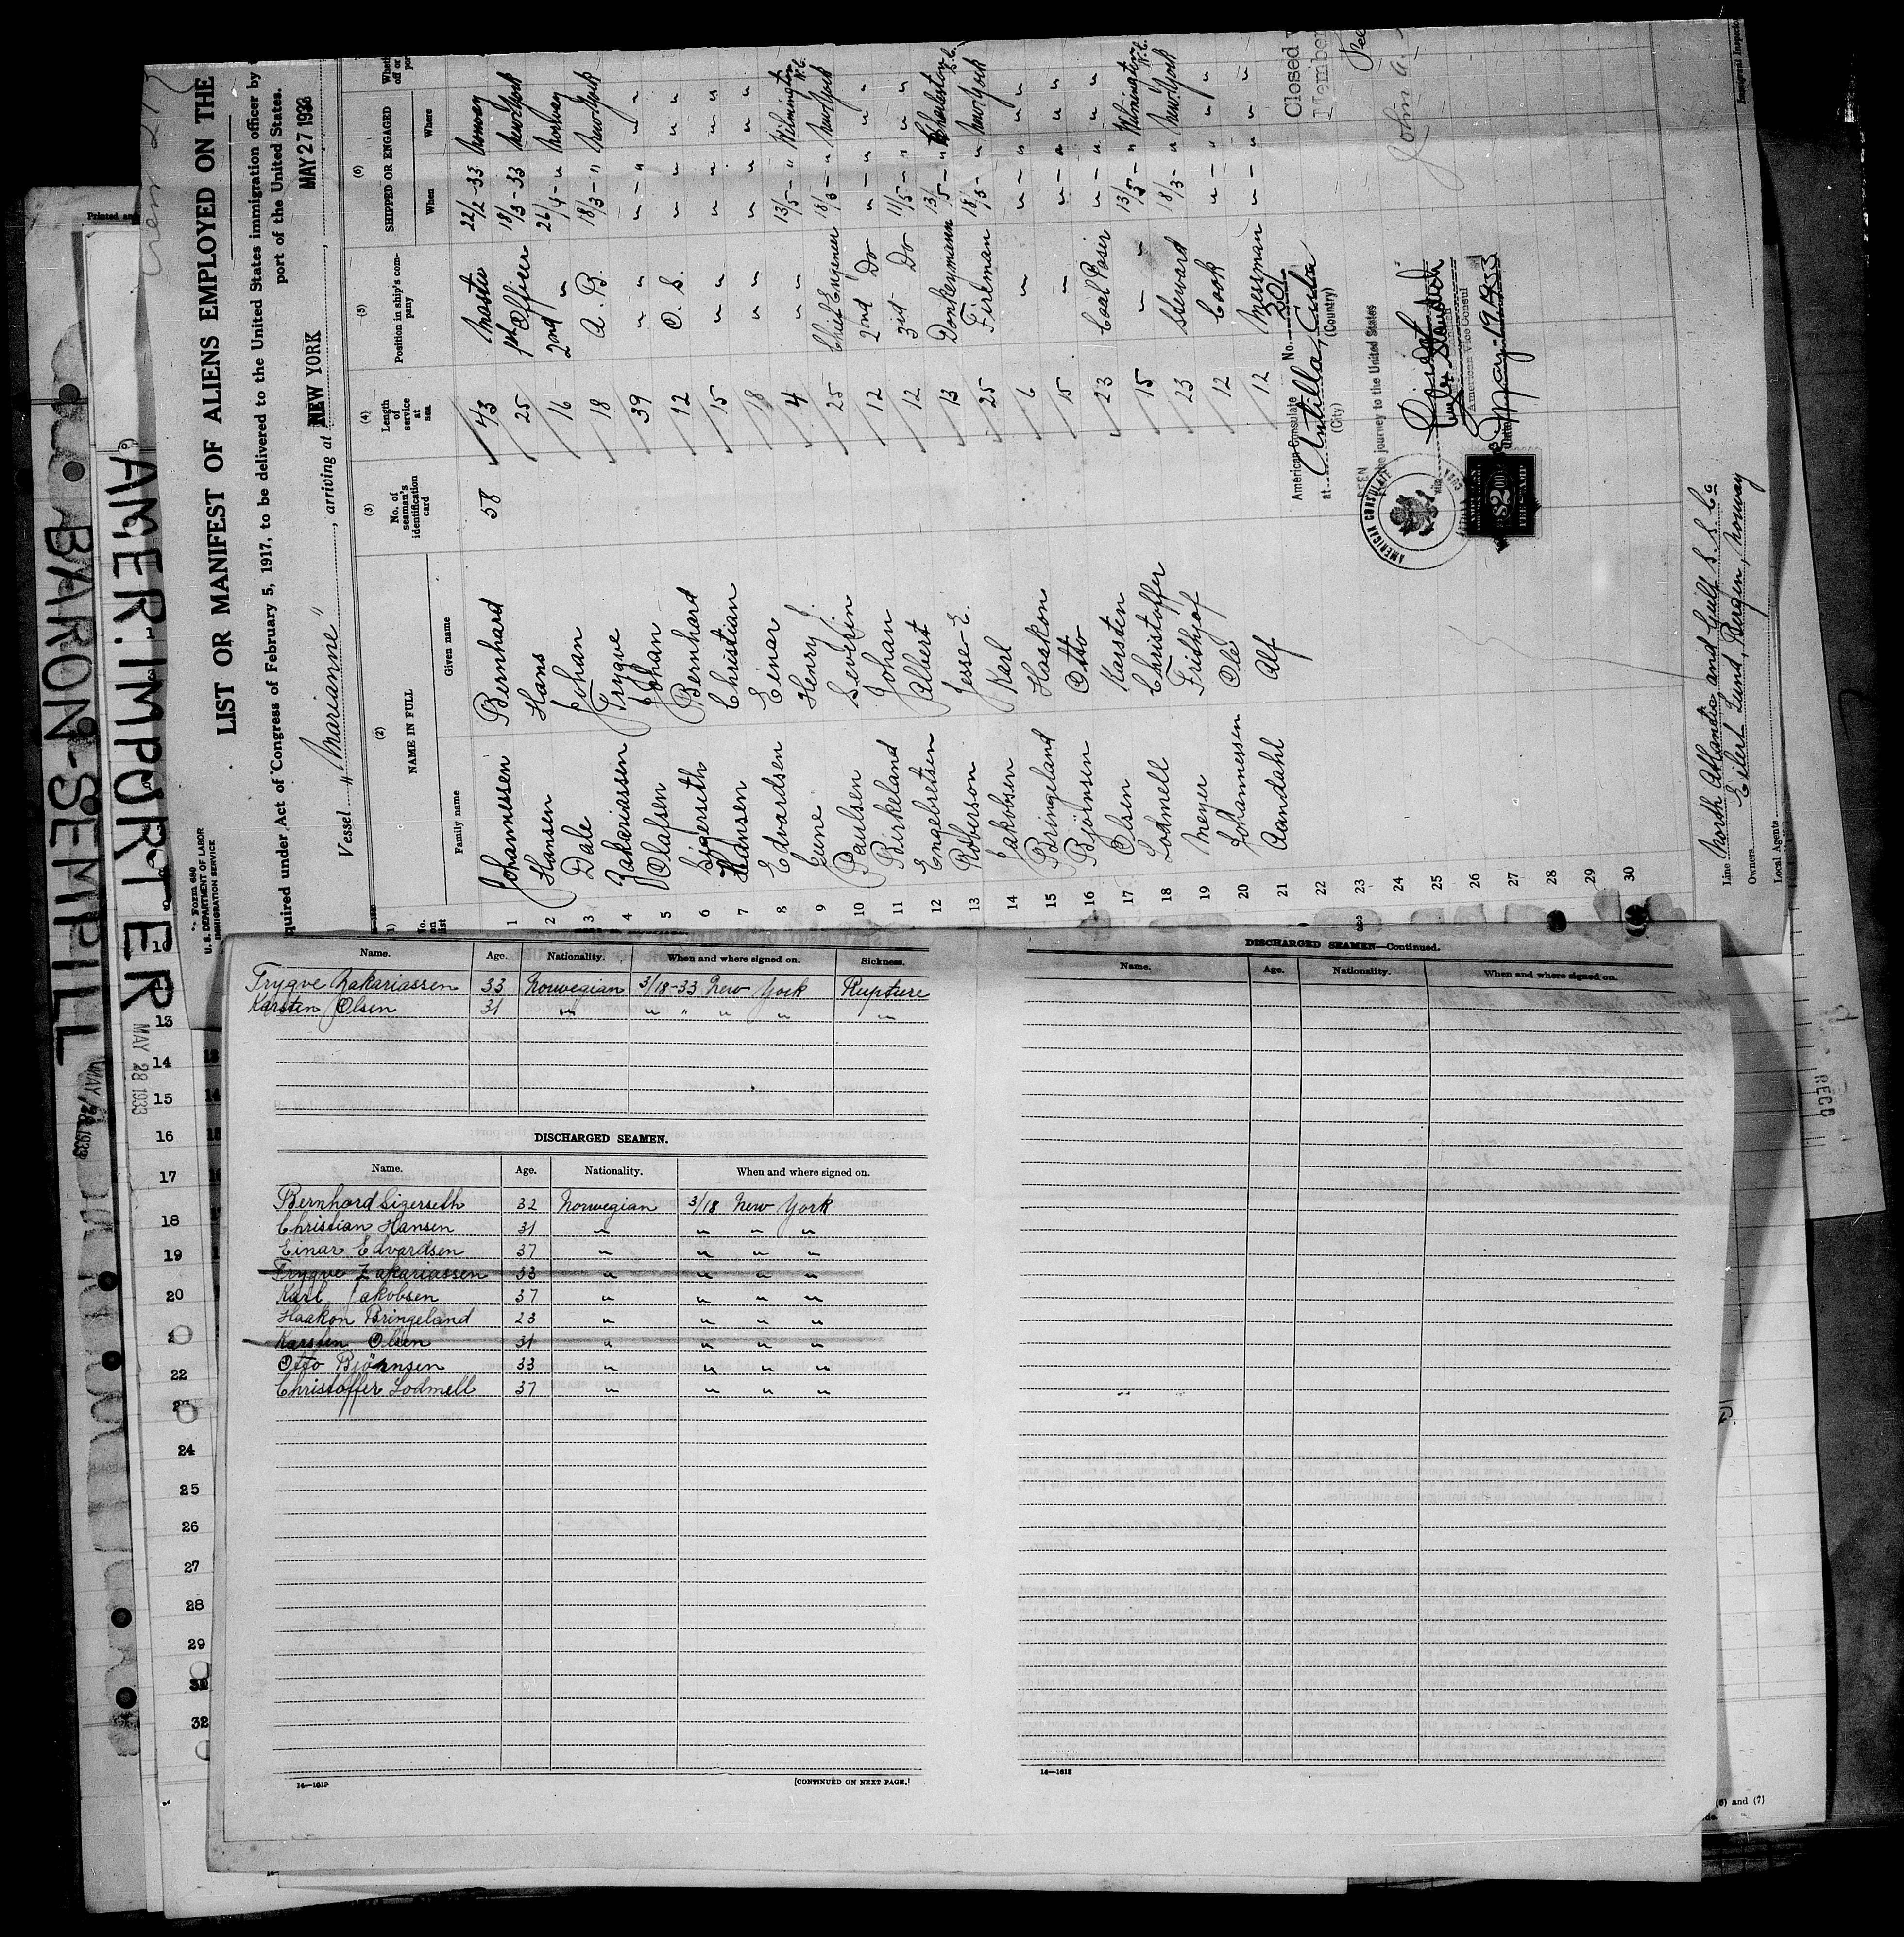 BARON-SEMPILL
MAY 28 1933
AMER. IMPORTER
MAY 28 1933
Printed
Form 680
U. S. DEPARTMENT OF LABOR
IMMIGRATION SERVICE
LIST OR MANIFEST OF ALIENS EMPLOYED ON THE
quired under Act of Congress of February 5, 1917, to be delivered to the United States immigration officer by
port of the United States.
Vessel "Marianne", arriving at NEW YORK, MAY 27 1933
(2) (3) (4) (5) (6)
NAME IN FULL No. of seaman's identification card Length of service at sea Position in ship's company SHIPPED OR ENGAGED
No. on list Family name Given name When Where
1 Johannessen Bernhard 58 43 Master 22/2-33 Norway
2 Hansen Hans 25 1st Officer 18/3-33 New York
3 Dale Johan 16 2nd " 26/4-" Norway
4 Zakariassen Trygve 18 A. B. 18/3-" New York
5 Olafsen Johan 39 " " " - " " "
6 Sigerseth Bernhard 12 O. S. " " " "
7 Hansen Christian 15 " " " " " "
8 Edvardsen Einar 18 " " " " " "
9 Eune Henry J. 4 " " 13/5-" Wilmington N.C.
10 Paulsen Severin 25 Chief Engeneer 18/3-" New York
11 Birkeland Johan 12 2nd Do " - " " "
12 Engebretsen Albert 12 3rd Do 11/5-" " "
13 Roberson Jesse-E. 13 Donkeymann 13/5-" Charleston S.C.
14 Jakobsen Karl 25 Fireman 18/3-" New York
15 Bringeland Haakon 6 " " - " " "
16 Björnsen Otto 15 " " - " " "
17 Olsen Karsten 23 Coal Paser " - " " "
18 Lodmell Christoffer 15 " " 13/5-" Wilmington N.C.
19 Meyer Fridthjof 23 Steward 18/3-" New York
20 Johannessen Ole 12 Cook " - " " "
21 Aandahl Alf 12 Messman " - " " "
22
23
24
25
26
27
28
29
30
American Consulate No. 30
at Antilla, Cuba
(City) (Country)
SEEN
For the journey to the United States
American Vice Consul
May-19-1933
AMERICAN CONSULATE
$2.00
FEE STAMP
Closed
Member
John A.
Line North Atlantic and Gulf S. S. Co
Owners Eilert Lund, Bergen, Norway
Local Agents
Immigrant Inspector
Name. Age. Nationality. When and where signed on. Sickness.
Trygve Zakariassen 33 Norwegian 3/18-33 New York Rupture
Karsten Olsen 31 " " " " " "
DISCHARGED SEAMEN.
Name. Age. Nationality. When and where signed on.
Bernhard Sigerseth 32 Norwegian 3/18 New York
Christian Hansen 31 " " " "
Einar Edvardsen 37 " " " "
Trygve Zakariassen 33 " " " "
Karl Jakobsen 37 " " " "
Haakon Bringeland 23 " " " "
Karsten Olsen 31 " " " "
Otto Björnsen 33 " " " "
Christoffer Lodmell 37 " " " "
14—1612 [CONTINUED ON NEXT PAGE.]
DISCHARGED SEAMEN—Continued.
Name. Age. Nationality. When and where signed on.
14—1612
13
14
15
16
17
18
19
20
22
24
25
26
27
28
29
32
RECD
(6) and (7)